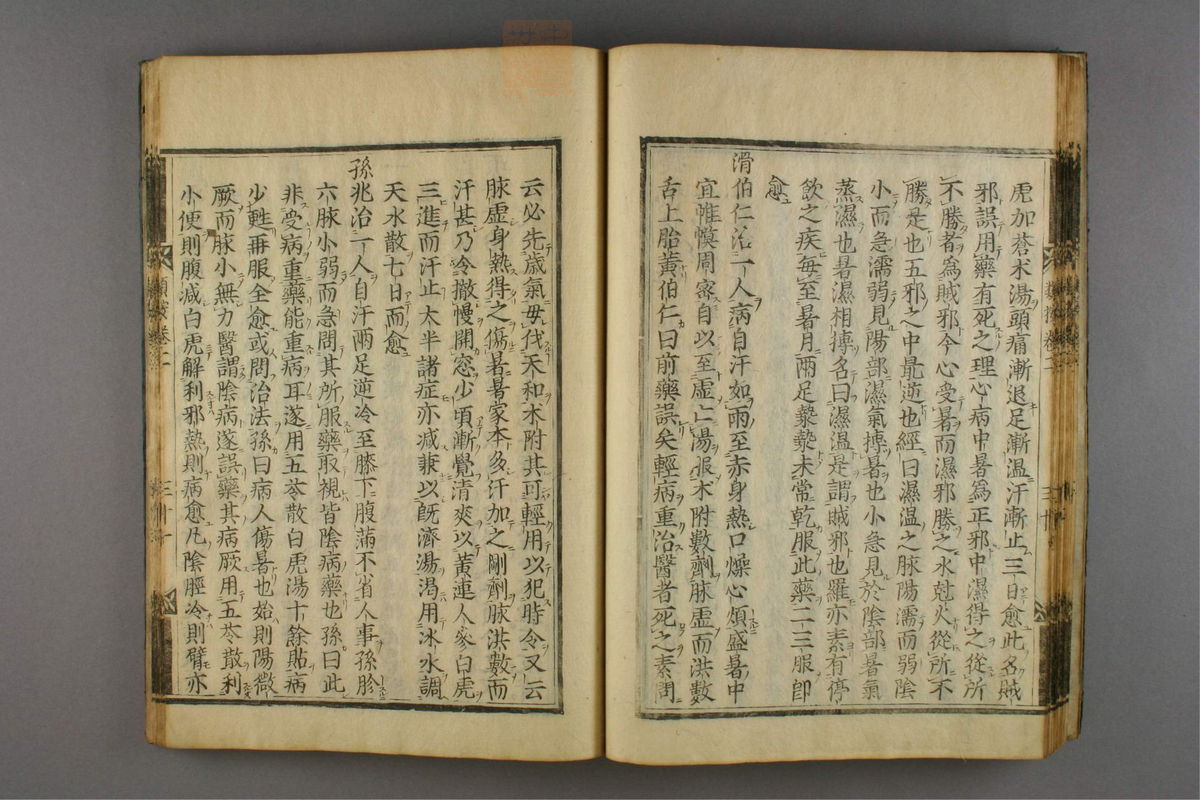 虎加蒼朮湯頭痛漸退足漸温汗漸止三日愈此名賊
邪誤用藥有死之理心病中暑為正邪中濕得之從所
不勝者為賊邪今心受暑而濕邪勝之水尅火從所不
勝是也五邪之中最逆也經曰濕温之脉陽濡而弱陰
小而急濡弱見陽部濕氣搏暑也小急見於陰部暑氣
蒸濕也暑濕相搏名曰濕温是謂賊邪也羅亦素有停
飲之疾毎至暑月兩足漐漐未常乾服此藥二三服即
愈
滑伯仁治一人病自汗如雨至赤身熱口燥心煩盛暑中
宜惟幙周密自以至虚亡湯服朮附數劑脉虚而洪數
舌上胎黄伯仁曰前藥誤矣輕病重治醫者死之素問
類按卷二
三十
云必先歳氣毋伐天和朮附其可輕用以犯時令又云
脉虚身熱得之傷暑暑家本多汗加之剛劑脉洪數而
汗甚乃令撤幔開窓少頃漸覺清爽以黄連人參白虎
三進而汗止太半諸症亦减兼以既濟湯渴用冰水調
天水散七日而愈
孫兆治一人自汗兩足逆冷至膝下腹滿不省人事孫胗
六脉小弱而急問其所服藥取視皆陰病藥也孫曰此
非受病重藥能重病耳遂用五苓散白虎湯十餘貼病
少甦再服全愈或問治法孫曰病人傷暑也始則陽微
厥而脉小無力醫謂陰病遂誤藥其病厥用五苓散利
小便則腹减白虎解利邪熱則病愈凡陰脛冷則臂亦
類按卷二
三十一